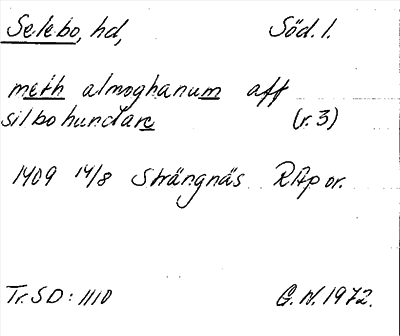 Selebo, hd, Söd. l.
meth almoghanum aff
silbohundare (r. 3)
1409 14/8 Strängnäs RAp or.
Tr. SD: 1110 G. N. 1972.